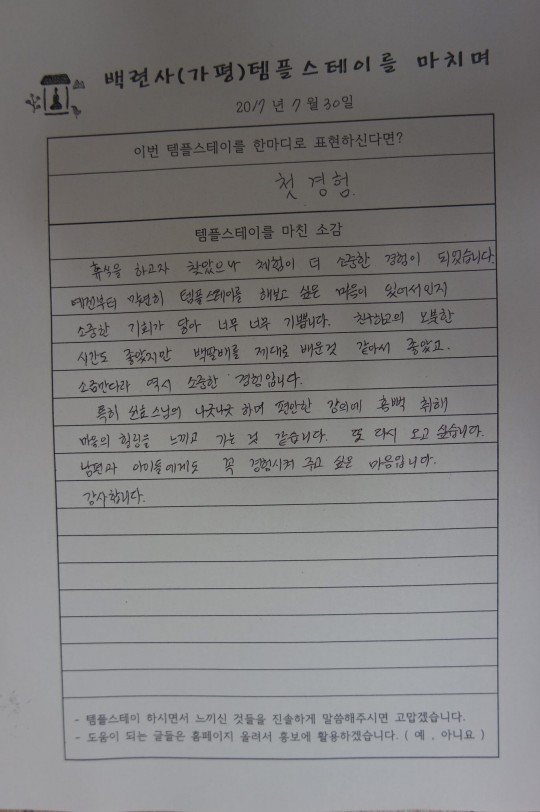 백련사(가평)템플스테이를 마치며
2017년 7월 30일
이번 템플스테이를 한마디로 표현하신다면?
첫 경험
템플스테이를 마친 소감
휴식을 하고자 찾았으나 체험이 더 소중한 경험이 되었습니다.
예전부터 막연히 템플스테이를 해보고 싶은 마음이 있어서인지
소중한 기회가 닿아 너무 너무 기쁩니다. 친구하고의 오붓한
시간도 좋았지만 백팔배를 제대로 배운것 같아서 좋았고.
소금만다라 역시 소중한 경험입니다.
특히 선효스님의 나긋나긋 하며 편안한 강의에 흠뻑 취해
마음의 힐링을 느끼고 가는 것 같습니다. 또 다시 오고 싶습니다.
남편과 아이들에게도 꼭 경험시켜 주고 싶은 마음입니다.
감사합니다.
- 템플스테이 하시면서 느끼신 것들을 진솔하게 말씀해주시면 고맙겠습니다.
- 도움이 되는 글들은 홈페이지 올려서 홍보에 활용하겠습니다. ( 예 . 아니요 )